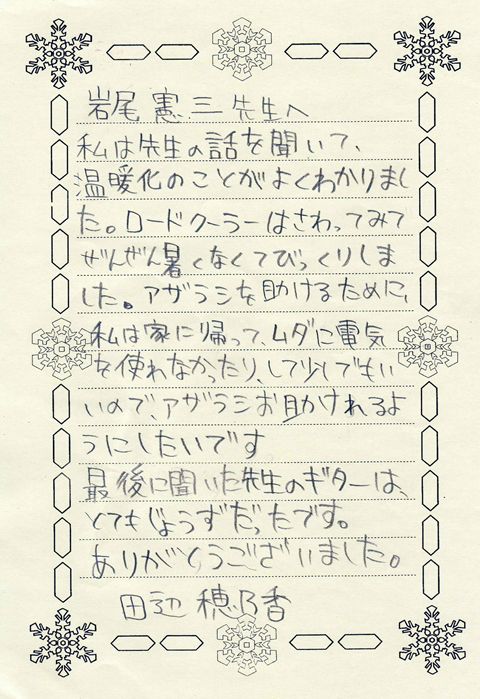 岩尾憲三先生へ
私は先生の話を聞いて、
温暖化のことがよくわかりまし
た。ロードクーラーはさわってみて
ぜんぜん暑くなくてびっくりしま
した。アザラシを助けるために、
私は家に帰って、ムダに電気
を使わなかったり、して少しでもい
いので、アザラシお助かれるよ
うにしたいです
最後に聞いた先生のギターは、
とてもじょうずだったです。
ありがとうございました。
田辺穂乃香